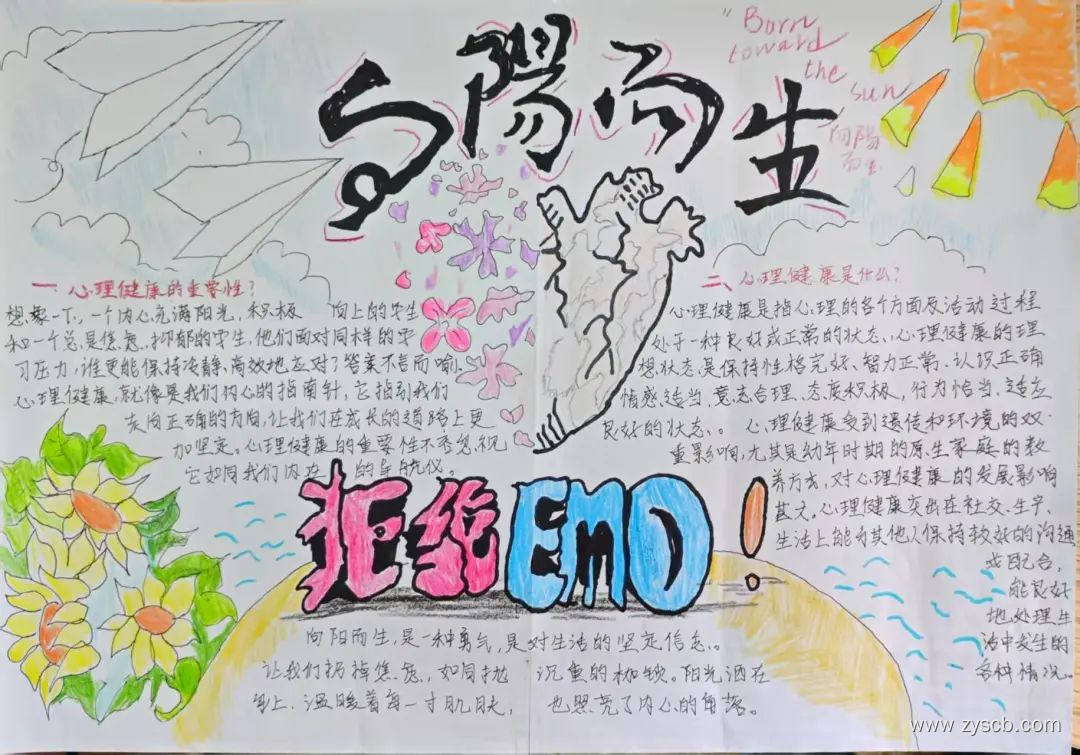 向陽而生
"Born
toward
the
sun
向陽
而生
一、心理健康的重要性?
想象一下,一个内心充满阳光,积极 向上的学生
和一个总是焦虑,抑郁的学生,他们面对同样的学
习压力,谁更能保持冷静,高效地应对?答案不言而喻。
心理健康,就像是我们内心的指南针,它指引我们
走向正确的方向,让我们在成长的道路上更
加坚定。心理健康的重要性不容忽视
它如同我们内在 的导航仪。
二、心理健康是什么?
心理健康是指心理的各个方面及活动过程
处于一种良好或正常的状态。心理健康的理
想状态是保持性格完好、智力正常、认识正确
情感适当,意志合理、态度积极,行为恰当、适应
良好的状态。 心理健康受到遗传和环境的双
重影响,尤其是幼年时期的原生家庭的教
养方式,对心理健康的发展影响
甚大。心理健康突出在社交、生产、
生活上能与其他人保持较好的沟通
或配合,
能良好
地处理生
活中发生的
各种情况。
拒绝EMO!
向阳而生,是一种勇气,是对生活的坚定信念。
让我们扔掉焦虑,如同抛 沉重的枷锁。阳光洒在
身上,温暖着每一寸肌肤, 也照亮了内心的角落。
www.zyscb.com